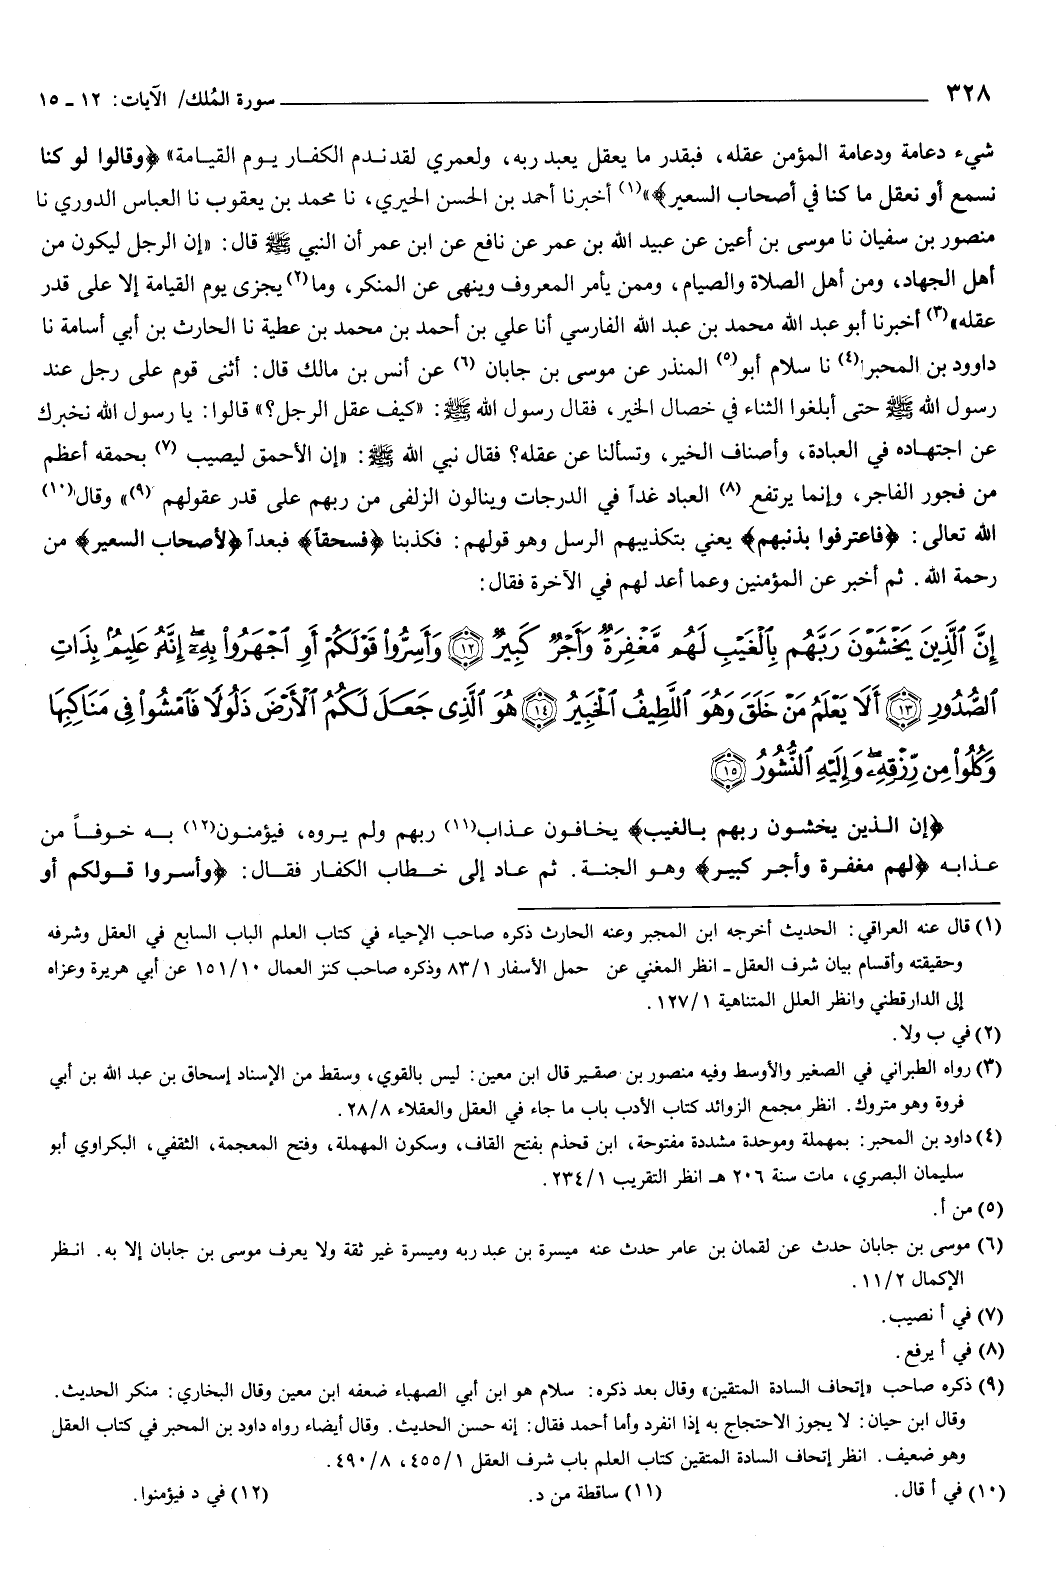 ٣٢٨ سورة المُلك/ الآيات: ١٢ ـ ١٥
شيء دعامة ودعامة المؤمن عقله، فبقدر ما يعقل يعبد ربه، ولعمري لقد ندم الكفار يوم القيامة» ﴿وقالوا لو كنا
نسمع أو نعقل ما كنا في أصحاب السعير﴾»(١) أخبرنا أحمد بن الحسن الحيري، نا محمد بن يعقوب نا العباس الدوري نا
منصور بن سفيان نا موسى بن أعين عن عبيد الله بن عمر عن نافع عن ابن عمر أن النبي ﷺ قال: «إن الرجل ليكون من
أهل الجهاد، ومن أهل الصلاة والصيام، وممن يأمر المعروف وينهى عن المنكر، وما(٢) يجزى يوم القيامة إلا على قدر
عقله»(٣) أخبرنا أبو عبد الله محمد بن عبد الله الفارسي أنا علي بن أحمد بن محمد بن عطية نا الحارث بن أبي أسامة نا
داوود بن المحبر(٤) نا سلام أبو(٥) المنذر عن موسى بن جابان (٦) عن أنس بن مالك قال: أثنى قوم على رجل عند
رسول الله ﷺ حتى أبلغوا الثناء في خصال الخير، فقال رسول الله ﷺ: «كيف عقل الرجل؟» قالوا: يا رسول الله نخبرك
عن اجتهاده في العبادة، وأصناف الخير، وتسألنا عن عقله؟ فقال نبي الله ﷺ: «إن الأحمق ليصيب (٧) بحمقه أعظم
من فجور الفاجر، وإنما يرتفع (٨) العباد غداً في الدرجات وينالون الزلفى من ربهم على قدر عقولهم (٩)» وقال(١٠)
الله تعالى: ﴿فاعترفوا بذنبهم﴾ يعني بتكذيبهم الرسل وهو قولهم: فكذبنا ﴿فسحقاً﴾ فبعداً ﴿لأصحاب السعير﴾ من
رحمة الله. ثم أخبر عن المؤمنين وعما أعد لهم في الآخرة فقال:
إِنَّ ٱلَّذِينَ يَخْشَوْنَ رَبَّهُم بِٱلْغَيْبِ لَهُم مَّغْفِرَةٌ وَأَجْرٌ كَبِيرٌ ﴿١٢﴾ وَأَسِرُّوا۟ قَوْلَكُمْ أَوِ ٱجْهَرُوا۟ بِهِۦٓ إِنَّهُۥ عَلِيمٌۢ بِذَاتِ
ٱلصُّدُورِ ﴿١٣﴾ أَلَا يَعْلَمُ مَنْ خَلَقَ وَهُوَ ٱللَّطِيفُ ٱلْخَبِيرُ ﴿١٤﴾ هُوَ ٱلَّذِى جَعَلَ لَكُمُ ٱلْأَرْضَ ذَلُولًا فَٱمْشُوا۟ فِى مَنَاكِبِهَا
وَكُلُوا۟ مِن رِّزْقِهِۦ وَإِلَيْهِ ٱلنُّشُورُ ﴿١٥﴾
﴿إن الذين يخشون ربهم بالغيب﴾ يخافون عذاب(١١) ربهم ولم يروه، فيؤمنون(١٢) به خوفاً من
عذابه ﴿لهم مغفرة وأجر كبير﴾ وهو الجنة. ثم عاد إلى خطاب الكفار فقال: ﴿وأسروا قولكم أو
(١) قال عنه العراقي: الحديث أخرجه ابن المجبر وعنه الحارث ذكره صاحب الإحياء في كتاب العلم الباب السابع في العقل وشرفه
وحقيقته وأقسام بيان شرف العقل ـ انظر المغني عن حمل الأسفار ٨٣/١ وذكره صاحب كنز العمال ١٥١/١٠ عن أبي هريرة وعزاه
إلى الدارقطني وانظر العلل المتناهية ١٢٧/١.
(٢) في ب ولا.
(٣) رواه الطبراني في الصغير والأوسط وفيه منصور بن صقير قال ابن معين: ليس بالقوي، وسقط من الإسناد إسحاق بن عبد الله بن أبي
فروة وهو متروك. انظر مجمع الزوائد كتاب الأدب باب ما جاء في العقل والعقلاء ٢٨/٨.
(٤) داود بن المحبر: بمهملة وموحدة مشددة مفتوحة، ابن قحذم بفتح القاف، وسكون المهملة، وفتح المعجمة، الثقفي، البكراوي أبو
سليمان البصري، مات سنة ٢٠٦ هـ انظر التقريب ٢٣٤/١.
(٥) من أ.
(٦) موسى بن جابان حدث عن لقمان بن عامر حدث عنه ميسرة بن عبد ربه وميسرة غير ثقة ولا يعرف موسى بن جابان إلا به. انظر
الإكمال ١١/٢.
(٧) في أ نصيب.
(٨) في أ يرفع.
(٩) ذكره صاحب «إتحاف السادة المتقين» وقال بعد ذكره: سلام هو ابن أبي الصهباء ضعفه ابن معين وقال البخاري: منكر الحديث.
وقال ابن حيان: لا يجوز الاحتجاج به إذا انفرد وأما أحمد فقال: إنه حسن الحديث. وقال أيضاء رواه داود بن المحبر في كتاب العقل
وهو ضعيف. انظر إتحاف السادة المتقين كتاب العلم باب شرف العقل ٤٥٥/١، ٤٩٠/٨.
(١٠) في أ قال. (١١) ساقطة من د. (١٢) في د فيؤمنوا.